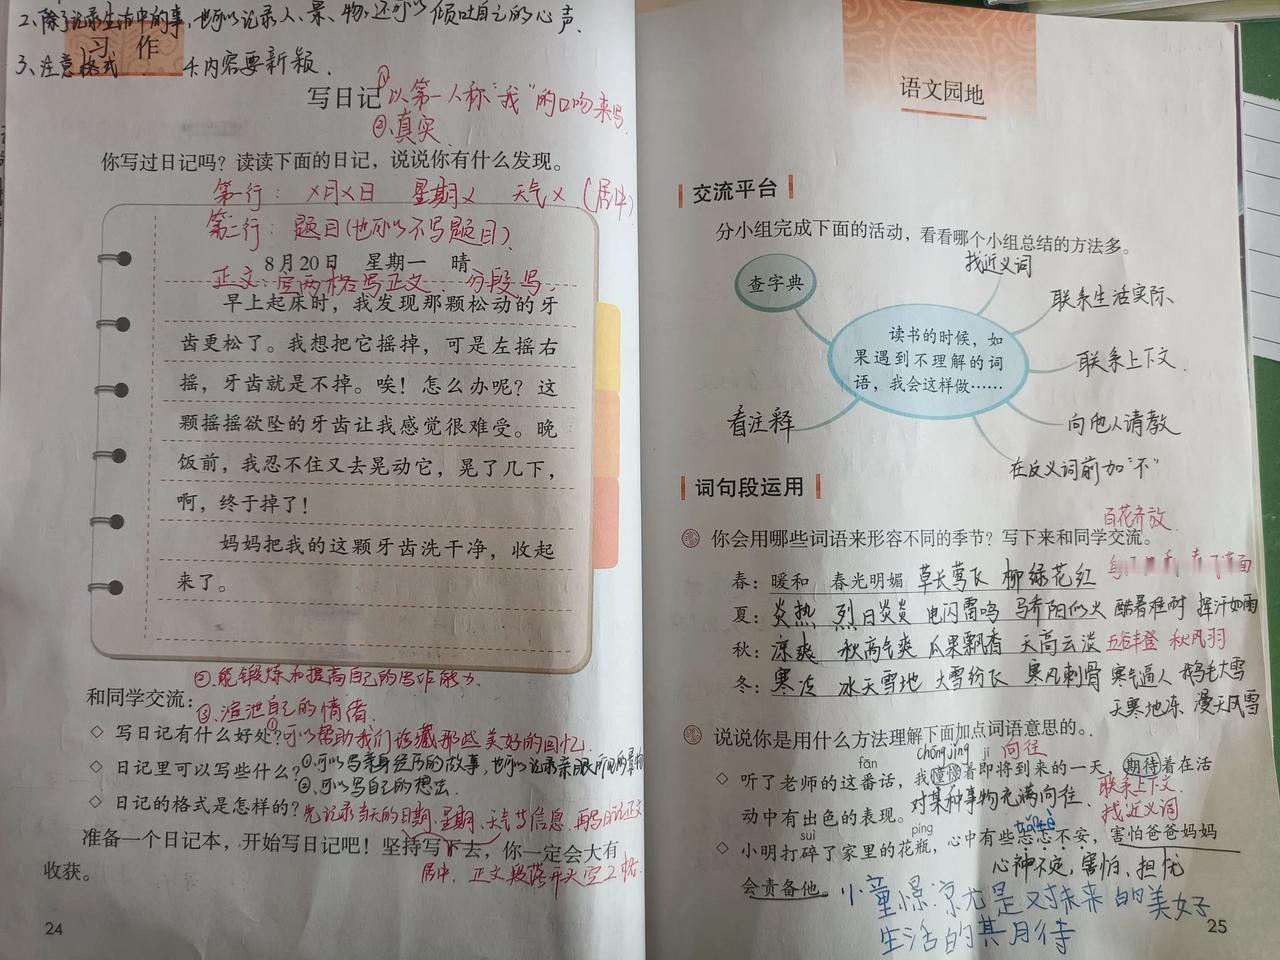 2、除了记录生活中的事,也可以记录人、景、物,还可以倾吐自己的心声.
习 作
3、注意格式 4.内容要新颖.
写日记
①以第一人称"我"的口吻来写.
②真实
你写过日记吗?读读下面的日记,说说你有什么发现。
第一行: X月X日 星期X 天气X (居中)
第二行: 题目(也可以不写题目).
8月20日 星期一 晴
正文:空两格写正文. 分段写.
早上起床时,我发现那颗松动的牙
齿更松了。我想把它摇掉,可是左摇右
摇,牙齿就是不掉。唉!怎么办呢?这
颗摇摇欲坠的牙齿让我感觉很难受。晚
饭前,我忍不住又去晃动它,晃了几下,
啊,终于掉了!
妈妈把我的这颗牙齿洗干净,收起
来了。
②能锻炼和提高自己的写作能力.
和同学交流:
③渲泄自己的情绪.
◇ 写日记有什么好处?①可以帮助我们珍藏那些美好的回忆.
◇ 日记里可以写些什么?①可以写亲身经历的故事,也可以记录亲眼所见的景物
②可以写自己的想法.
◇ 日记的格式是怎样的?先记录当天的日期、星期、天气等信息.再写日记正文
准备一个日记本,开始写日记吧!坚持写下去,你一定会大有
收获。
居中. 正文段落开头空2格.
24
语文园地
交流平台
分小组完成下面的活动,看看哪个小组总结的方法多。
找近义词
查字典
联系生活实际、
读书的时候,如
果遇到不理解的词
语,我会这样做……
联系上下文.
看注释
向他人请教
在反义词前加"不"
词句段运用
百花齐放
你会用哪些词语来形容不同的季节?写下来和同学交流。
春:暖和 春光明媚 草长莺飞 柳绿花红
夏:炎热 烈日炎炎 电闪雷鸣 骄阳似火 酷暑难耐 挥汗如雨
秋:凉爽 秋高气爽 瓜果飘香 天高云淡 五谷丰登
冬:寒冷 冰天雪地 大雪纷飞 寒风刺骨 寒气逼人 鹅毛大雪
天寒地冻、漫天风雪
说说你是用什么方法理解下面加点词语意思的。
fān chōng jǐng jí 向往
◇ 听了老师的这番话,我憧憬着即将到来的一天,期待着在活
动中有出色的表现。对某种事物充满向往.
联系上下文.
找近义词
suì píng
◇ 小明打碎了家里的花瓶,心中有些忐忑不安,害怕爸爸妈妈
心神不定,害怕、担忧
会责备他。
小童憬:尤是对未来的美好
生活的期待
25